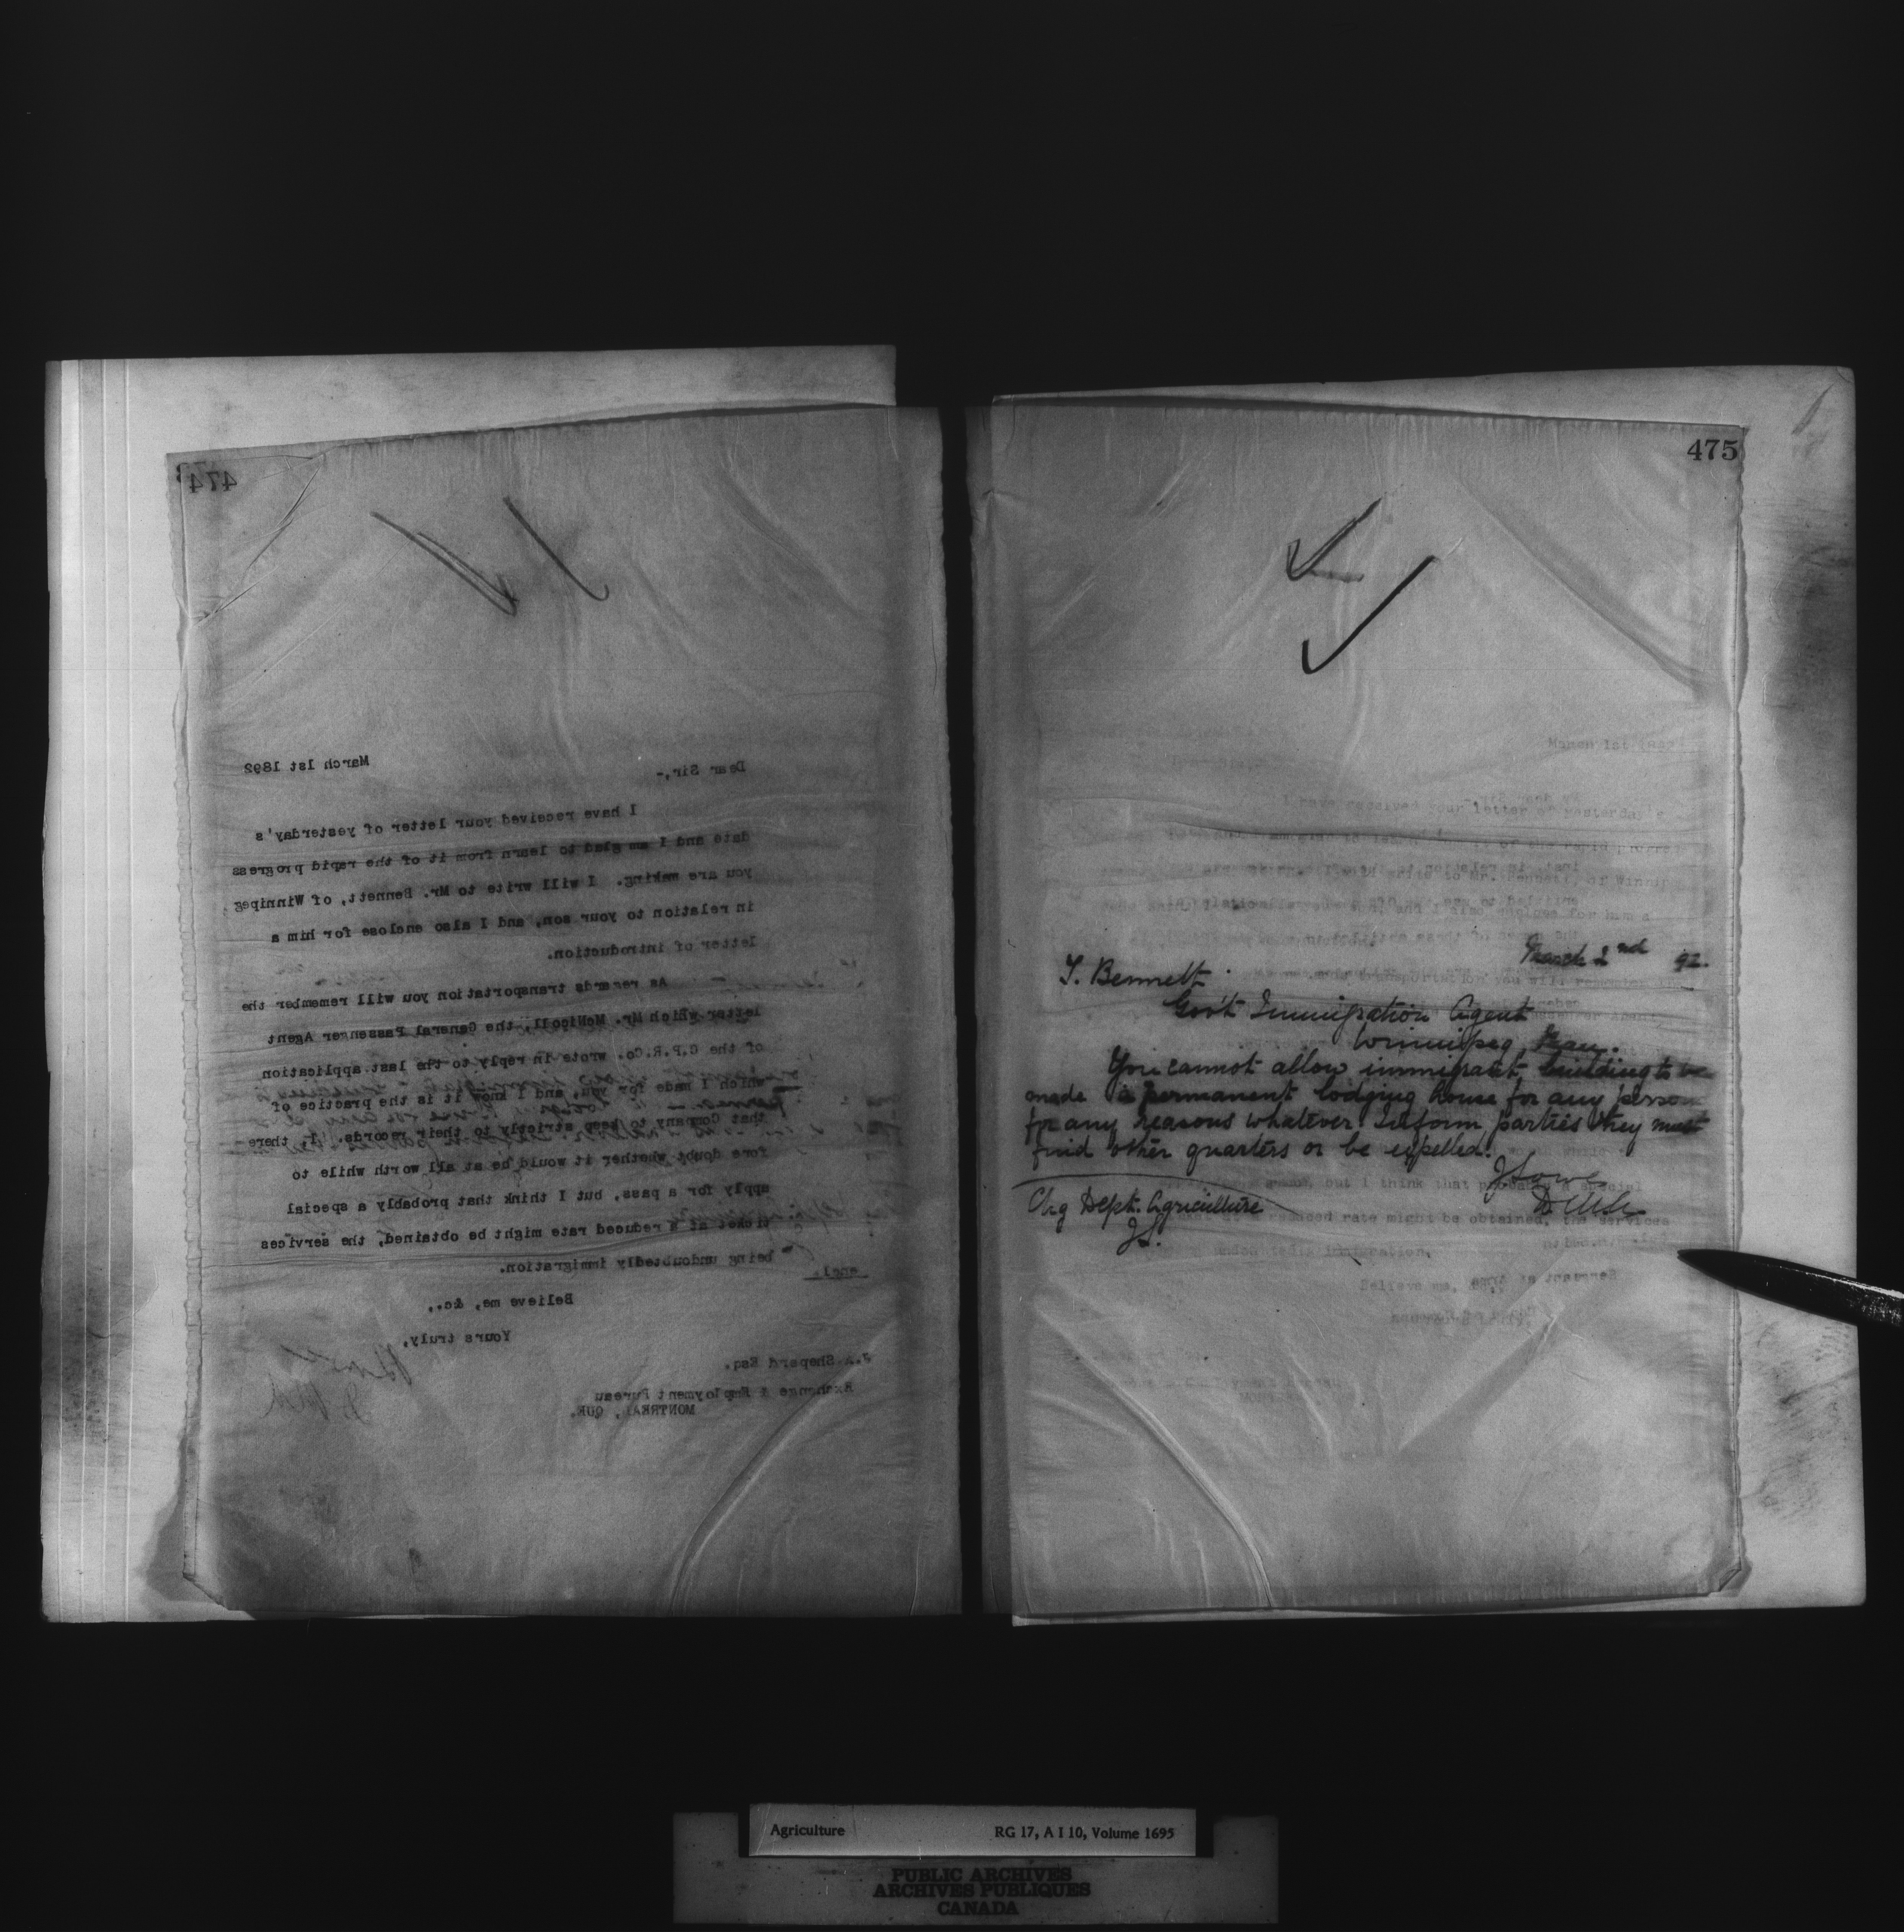 474
March 1st 1892
Dear Sir,-
I have received your letter of yesterday's
date and I am glad to learn from it of the rapid progress
you are making. I will write to Mr. Bennett, of Winnipeg
in relation to your son, and I also enclose for him a
letter of introduction.
As regards transportation you will remember the
letter which Mr. McNicoll, the General Passenger Agent
of the C.P.R.Co. wrote in reply to the last application
which I made for you, and I know it is the practice of
that Company to keep strictly to their records. I, there-
fore doubt whether it would be at all worth while to
apply for a pass, but I think that probably a special
ticket at a reduced rate might be obtained, the services
being undoubtedly immigration.
encl.
Believe me, &c.,
Yours truly,
J.A. Sheperd Esq.
Exchange & Employment Bureau
MONTREAL, QUE.
475
March 2nd 92.
T. Bennett
Gov't Immigration Agent
Winnipeg, Man.
You cannot allow immigrant building to be
made a permanent lodging house for any person
for any reasons whatever. Inform parties they must
find other quarters or be expelled.
J Lowe
Chg Dept. Agriculture
J.L.
Agriculture RG 17, A I 10, Volume 1695
PUBLIC ARCHIVES
ARCHIVES PUBLIQUES
CANADA